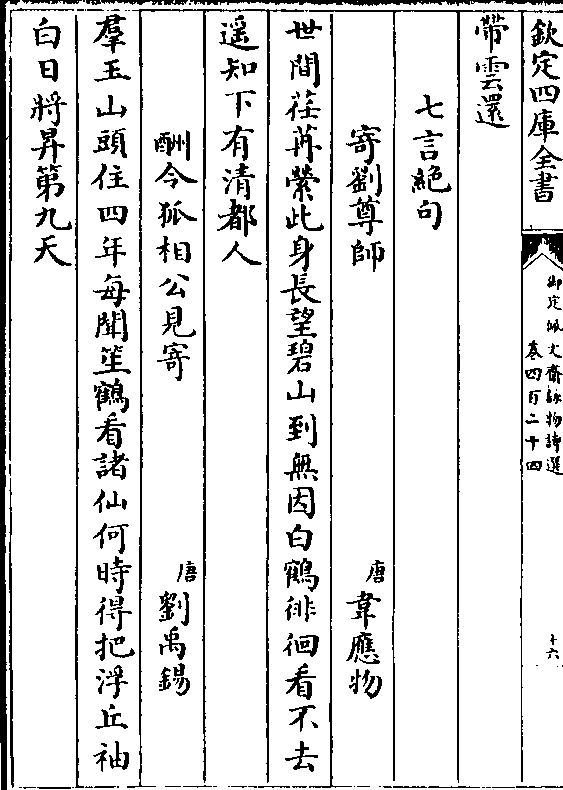 欽定四庫全書
御定佩文齋詠物詩選
卷四百二十四
十六
帶雲還
七言絕句
寄劉尊師
唐
韋應物
世間荏苒縈此身長望碧山到無因白鶴徘徊看不去
遥知下有清都人
酬令狐相公見寄
唐
劉禹錫
羣玉山頭住四年每聞笙鶴看諸仙何時得把浮丘袖
白日將昇第九天